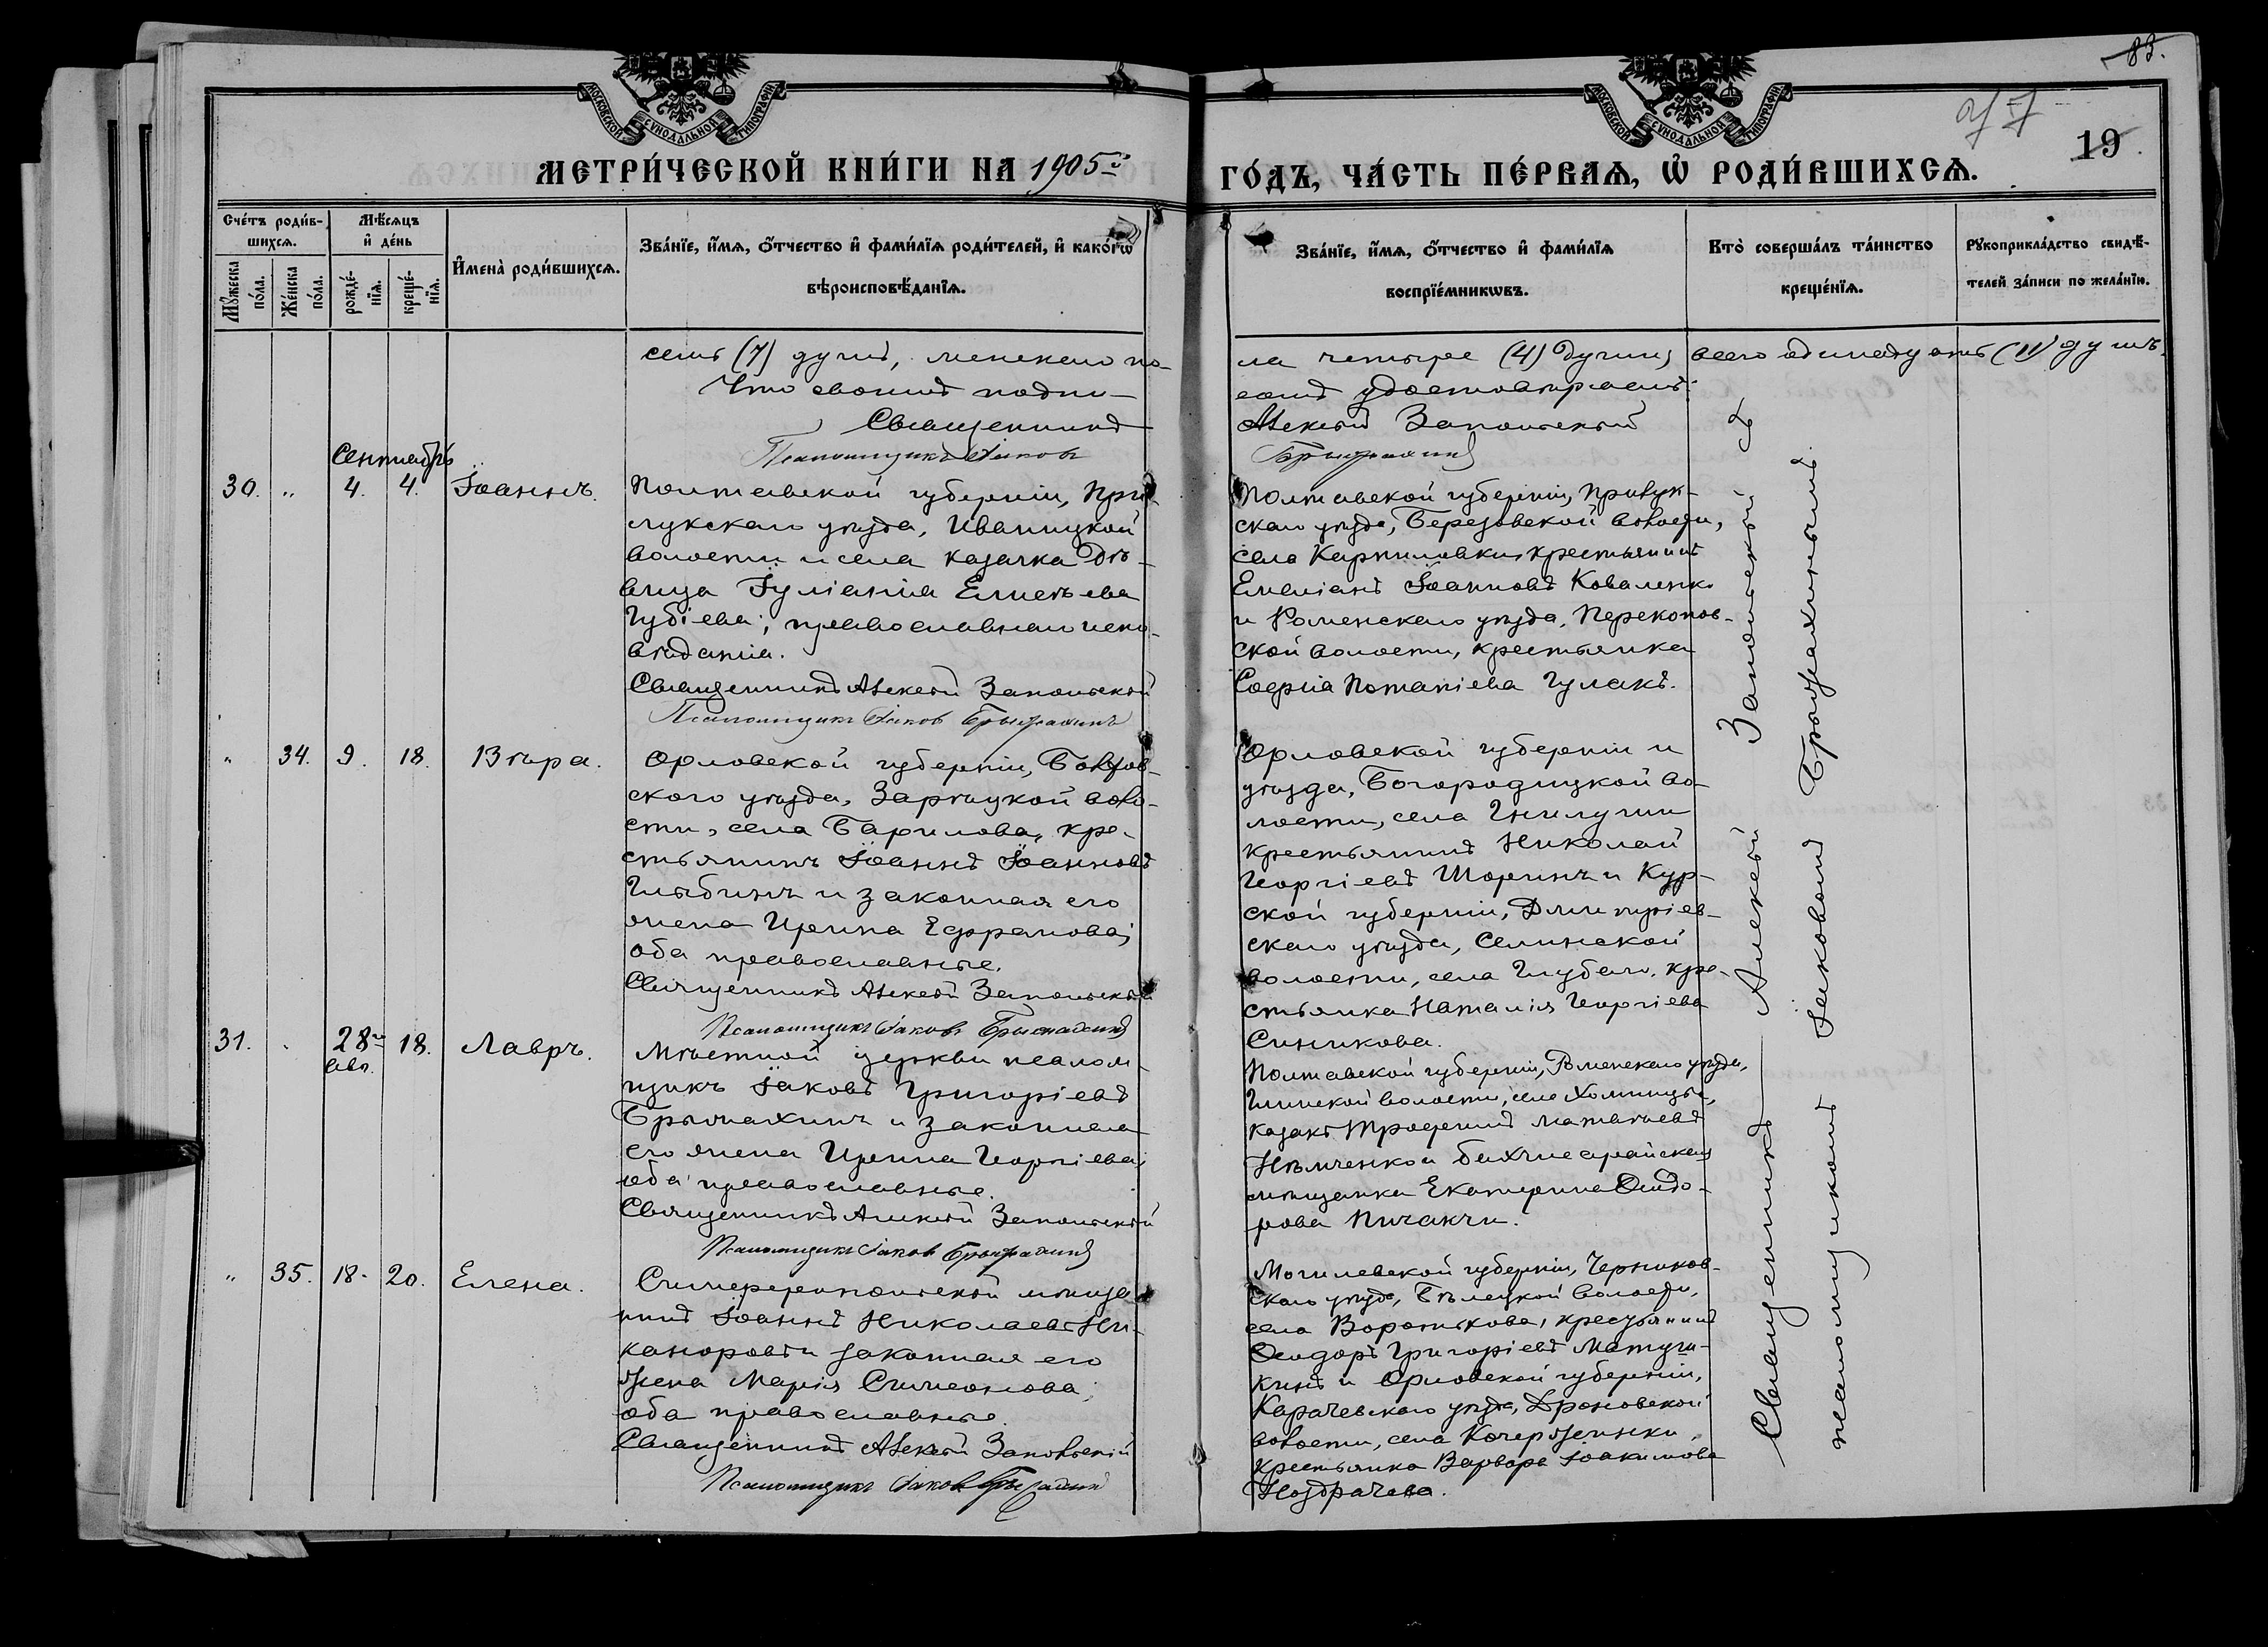 83.
97
19
МОСКОВСКОЙ СѴНОДАЛЬНОЙ ТИПОГРАФІИ
МОСКОВСКОЙ СѴНОДАЛЬНОЙ ТИПОГРАФІИ
МЕТРИ́ЧЕСКОЙ КНИ́ГИ НА 1905й
ГО́ДЪ, ЧА́СТЬ ПЕ́РВАѦ, Ѡ҆ РОДИ́ВШИХСѦ.
Сче́тъ роди́в-
шихсѧ.
Мꙋ́жеска по́ла.
Же́нска по́ла.
Мѣ́сѧцъ
и҆ де́нь
рожде́-нїѧ.
креще́-нїѧ.
И҆мена̀ роди́вшихсѧ.
Зва́нїе, и҆́мѧ, ѻ҆́тчество и҆ фами́лїѧ роди́телей, и҆ како́гѡ
вѣроисповѣ́данїѧ.
Зва́нїе, и҆́мѧ, ѻ҆́тчество и҆ фами́лїѧ
воспрїе́мникѡвъ.
Кто̀ соверша́лъ та́инство
креще́нїѧ.
Рꙋкоприкла́дство свидѣ́-
телей за́писи по жела́нїю.
семь (7) душъ, женскаго по-
ла четыре (4) души, всего одинадцать (11) душъ.
Что своимъ подпи-
сомъ удостовѣряемъ:
Священникъ
Алексѣй Запольскій
Псаломщикъ Іаковъ
Брызжахинъ
Сентябрь
30. „ 4. 4. Іоаннъ.
Полтавской губерніи, При-
лукскаго уѣзда, Иваницкой
волости и села казачка дѣ-
вица Іуліанія Елисѣева
Губіева; православнаго испо-
вѣданія.
Священникъ Алексѣй Запольскій
Псаломщикъ Іаковъ Брызжахинъ
Полтавской губерніи, Прилук-
скаго уѣзда, Березовской волости,
села Карпиловки, крестьянинъ
Емеліанъ Іоанновъ Коваленко
и Роменскаго уѣзда, Перекопов-
ской волости, крестьянка
Софія Потапіева Гулакъ.
„ 34. 9. 18. Вѣра.
Орловской губерніи, Болхов-
скаго уѣзда, Зарѣцкой воло-
сти, села Барилова, кре-
стьянинъ Іоаннъ Іоанновъ
Глыбинъ и законная его
жена Ирина Ефремова;
оба православные.
Священникъ Алексѣй Запольскій
Псаломщикъ Іаковъ Брызжахинъ
Орловской губерніи и
уѣзда, Богородицкой во-
лости, села Гнилуши
крестьянинъ Николай
Георгіевъ Шоринъ и Кур-
ской губерніи, Дмитріев-
скаго уѣзда, Селинской
волости, села Глубаго, кре-
стьянка Наталія Георгіева
Синикова.
31. „ 28го авг. 18. Лавръ.
Мѣстной церкви псалом-
щикъ Іаковъ Григоріевъ
Брызжахинъ и законная
его жена Ирина Георгіева;
оба православные.
Священникъ Алексѣй Запольскій
Псаломщикъ Іаковъ Брызжахинъ
Полтавской губерніи, Роменскаго уѣзда,
Глинской волости, села
казакъ Трофимъ Матвѣевъ
Нѣмченко и бахчисарайская
мѣщанка Екатерина Ѳеодо-
рова Пичакчи.
„ 35. 18. 20. Елена.
Симферопольскій мѣща-
нинъ Іоаннъ Николаевъ Ни-
каноровъ и законная его
жена Марія Симеонова;
оба православные.
Священникъ Алексѣй Запольскій
Псаломщикъ Іаковъ Брызжахинъ
Могилевской губерніи, Чериков-
скаго уѣзда, Бѣлецкой волости,
села Воротькова, крестьянинъ
Ѳеодоръ Григоріевъ Матузи-
кинъ и Орловской губерніи,
Карачевскаго уѣзда, Дроновской
волости, села Кочержинки
крестьянка Варвара Іоакимова
Ноздрачева.
Священникъ Алексѣй Запольскій съ
псаломщикомъ Іаковомъ Брызжахинымъ.